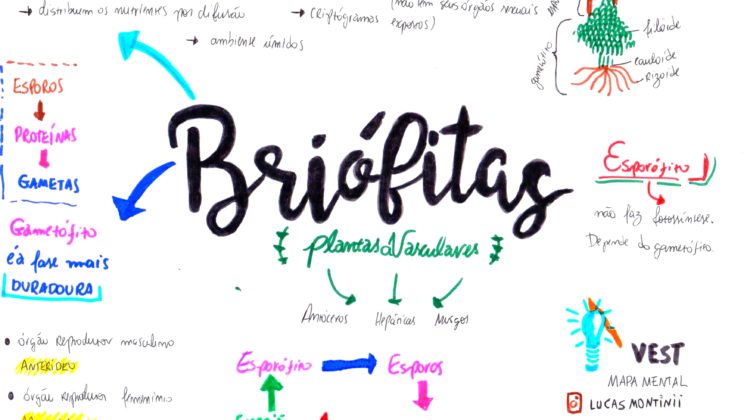 → distribuem os nutrientes por difusão
→ ambiente úmidos
→ criptógramas (não tem seus órgãos sexuais
expostos)
gametófito
filóide
caulóide
rizóide
ESPOROS
PROTEÍNAS
GAMETAS
Gametófito
é a fase mais
DURADOURA
Briófitas
plantas aVasculares
Antóceros Hepáticas Musgos
Esporófito
não faz fotossíntese.
Depende do gametófito.
• órgão reprodutor masculino
ANTERÍDEO
• órgão reprodutor feminino
Esporófito → Esporos
VEST
MAPA MENTAL
LUCAS MONTINII